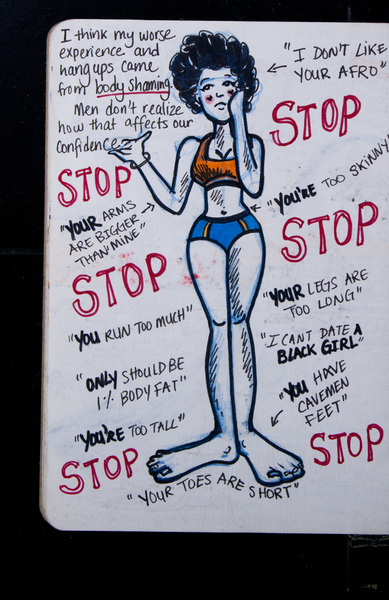 I think my worse
experience and
hangups came
from body shaming.
Men don't realize
how that affects our
confidence
"I DON'T LIKE
YOUR AFRO"
STOP
STOP
"YOU'RE TOO SKINNY
"YOUR ARMS
ARE BIGGER
THAN MINE"
STOP
STOP
"YOUR LEGS ARE
TOO LONG"
"YOU RUN TOO MUCH"
"I CANT DATE A
BLACK GIRL"
"ONLY SHOULD BE
1% BODY FAT"
"YOU HAVE
CAVEMEN
FEET"
"YOU'RE TOO TALL"
STOP
STOP
"YOUR TOES ARE SHORT"